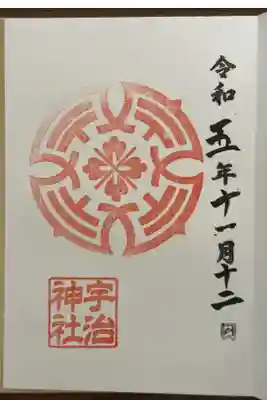 令和五年十一月十二日
宇治
神社